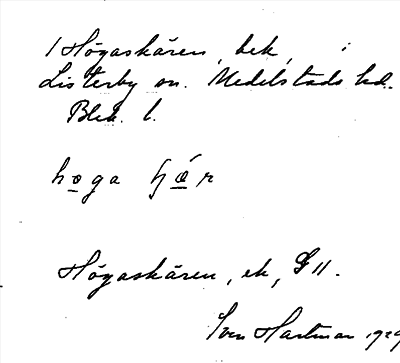 1 Högaskären, bek, i
Listerby sn. Medelstads hd.
Blek. l.
hoga ʃǽr
Högaskären, ek, G 11.
Sven Hartman 1929